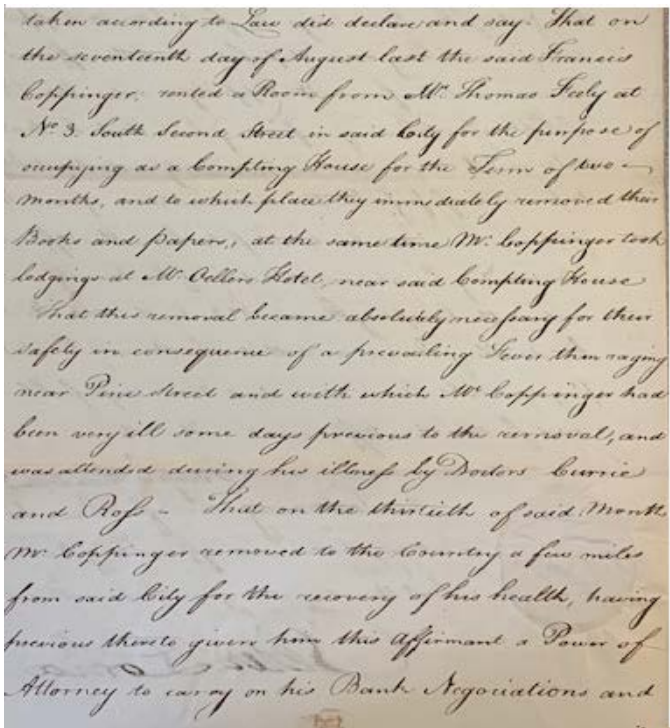 taken according to Law did declare and say. That on
the seventeenth day of August last the said Francis
Coppinger, rented a Room from Mr. Thomas Feely at
No. 3. South Second Street in said City for the purpose of
occupying as a Compting House for the Term of two
Months, and to which place they immediately removed their
Books and papers, at the same time Mr. Coppinger took
lodgings at Mr. Oellers Hotel, near said Compting House
That this removal became absolutely necessary for their
safety in consequence of a prevailing Fever then raging
near Pine Street and with which Mr. Coppinger had
been very ill some days previous to the removal, and
was attended during his illness by Doctors Currie
and Ross - That on the thirtieth of said Month
Mr. Coppinger removed to the Country a few miles
from said City for the recovery of his health, having
previous thereto given him this Affirmant a Power of
Attorney to carry on his Bank Negociations and